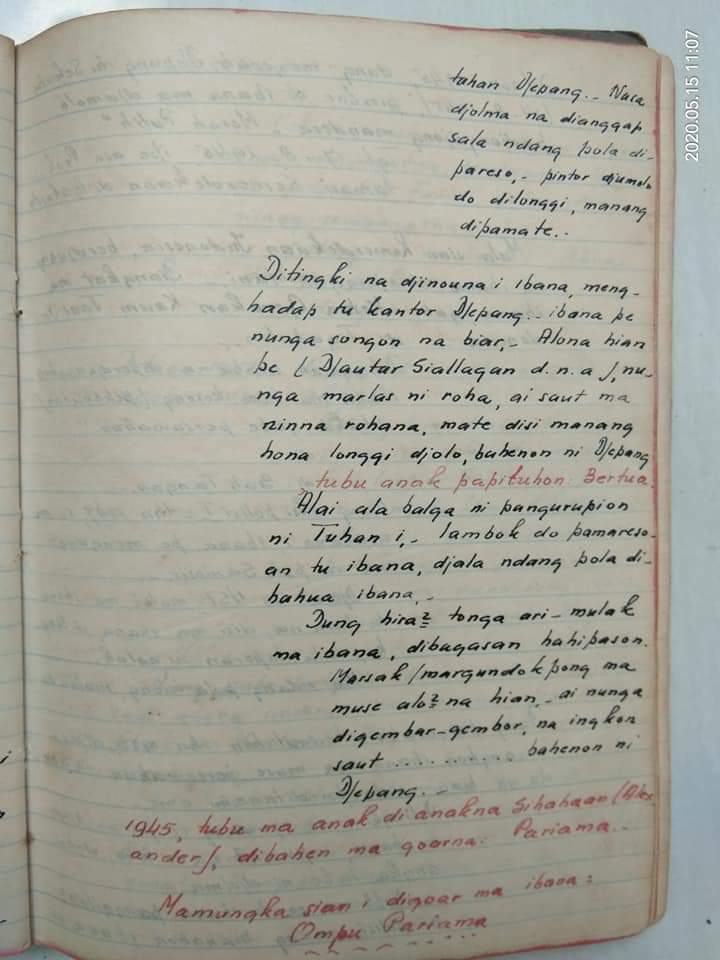 2020.05.15 11:07
tahan Djepang.- Nasa
djolma na dianggap
sala ndang pola di-
pareso,- pintor djumolo
do dilonggi, manang
dipamate..
Ditingki na djinouna i ibana, meng-
hadap tu kantor Djepang.. ibana pe
nunga songon na biar,- Alona hian
pe (Djautar Siallagan d.n.a), nu-
nga marlas ni roha, ai saut ma
ninna rohana, mate disi manang
hona longgi djolo, bahenon ni Djepang
tubu anak papituhon Bertua.
Alai ala balga ni pangurupion
ni Tuhan i,- lambok do pamareso-
an tu ibana, djala ndang pola di-
bahua ibana.-
Dung hira2 tonga ari- mulak
ma ibana, dibagasan hahipason.
Marsak/margundokpong ma
muse alo2 na hian,- ai nunga
digembar-gembor, na ingkon
saut .......... bahenon ni
Djepang.-
1945, tubu ma anak di anakna Sihahaan (Alex
ander), dibahen ma goarna: Pariama..
Mamungka sian i digoar ma ibana:
Ompu Pariama